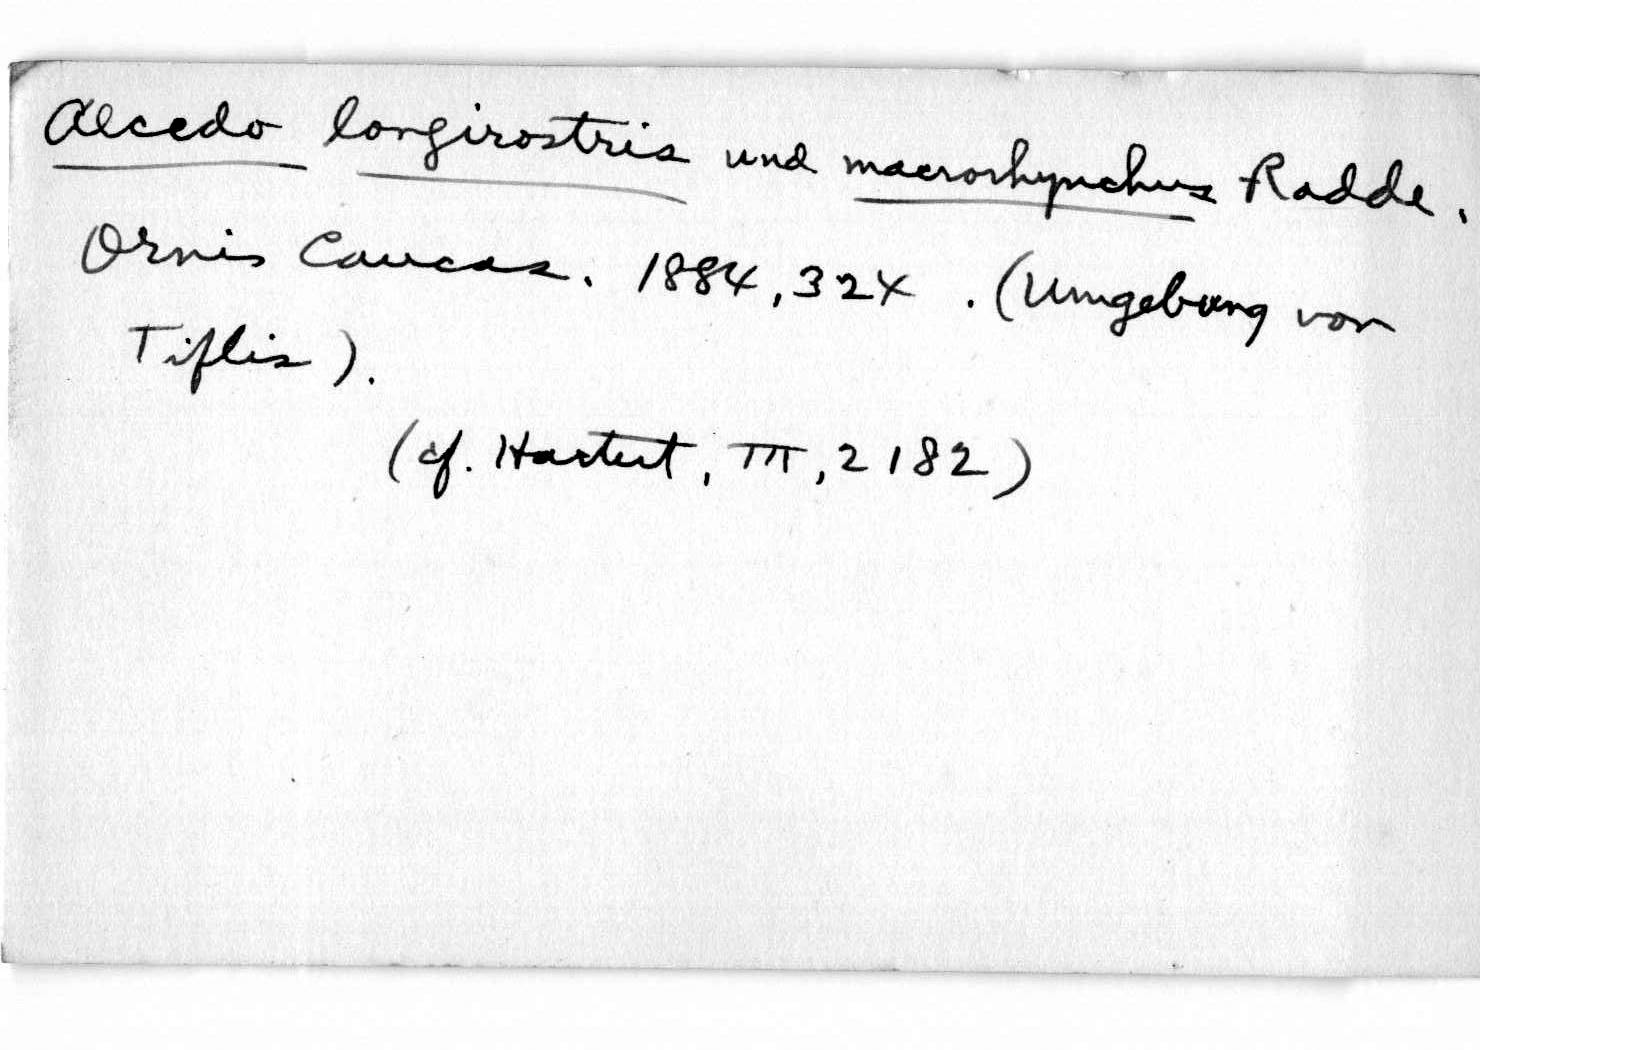 Alcedo longirostris und macrorhynchus Radde.
Ornis Caucas. 1884, 324. (Umgebung von
Tiflis).
(cf. Hartert, III, 2182)